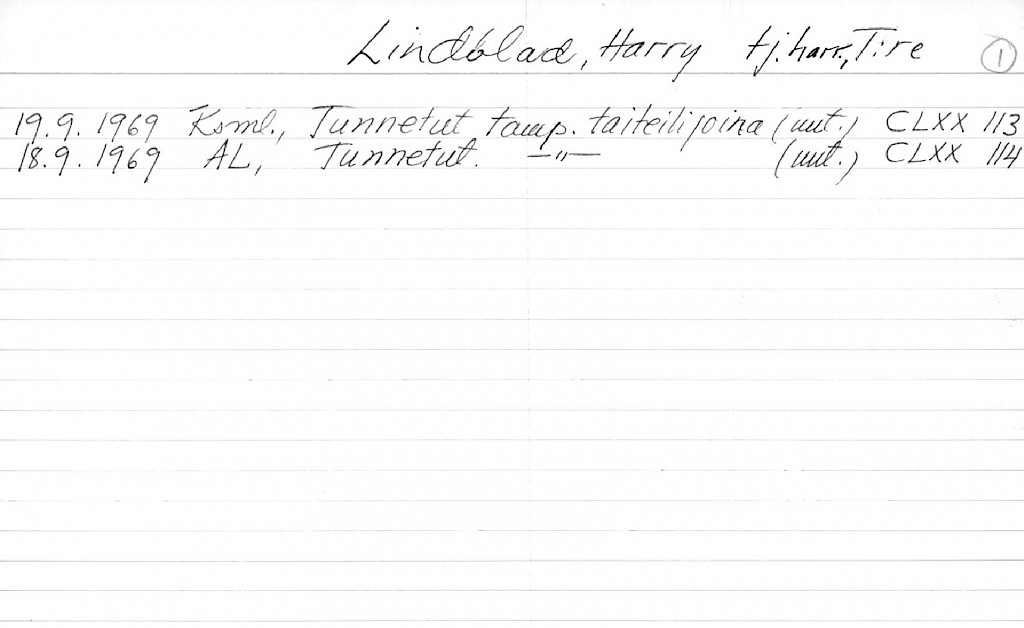 Lindblad, Harry tj. harr., Tire 1
19.9. 1969 Ksml., Tunnetut tamp. taiteilijoina (uut.) CLXX 113
18.9. 1969 AL, Tunnetut. —"— (uut.) CLXX 114